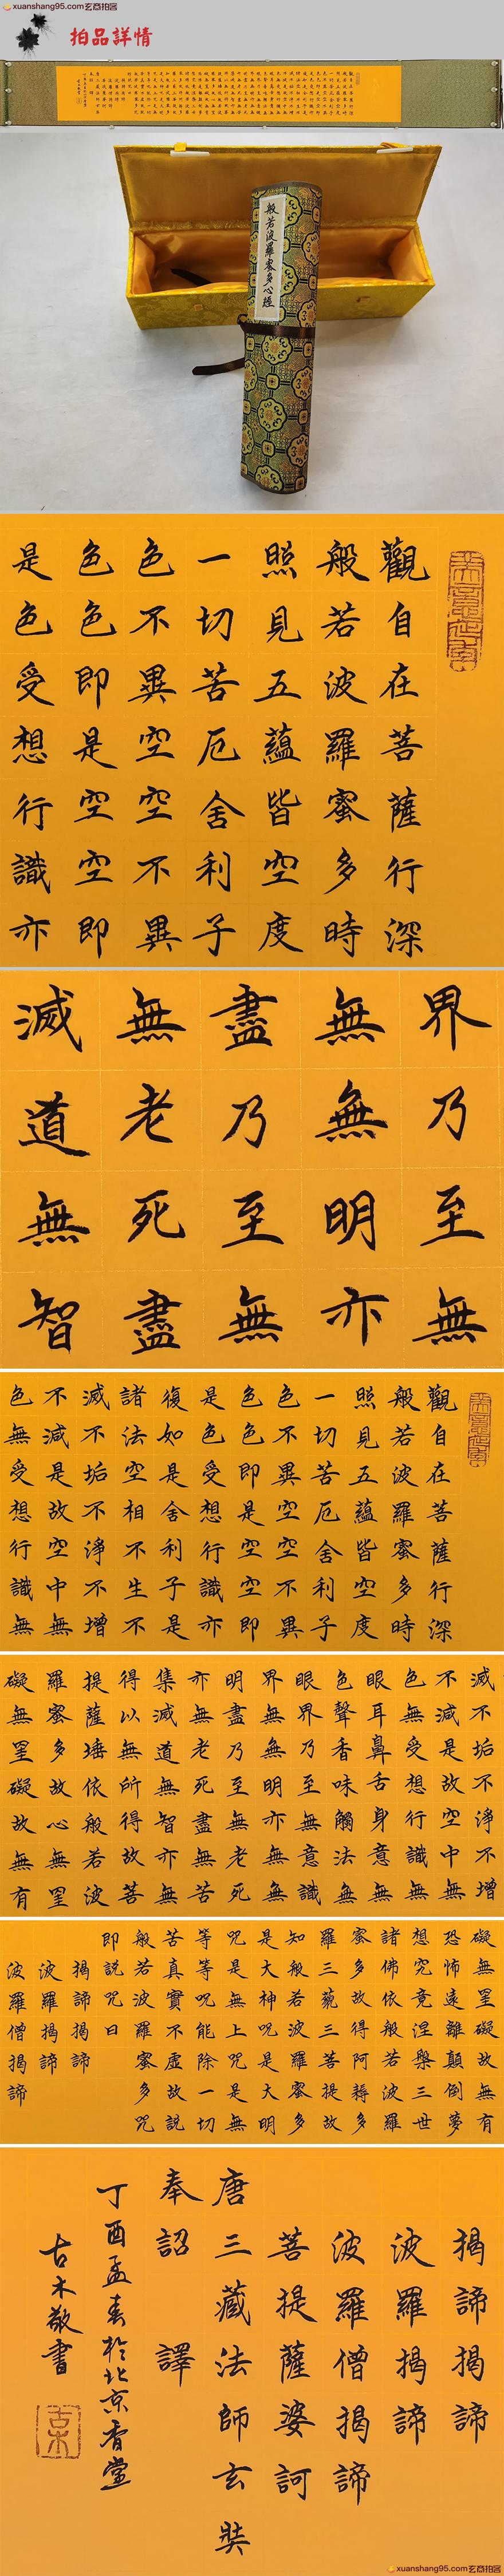 xuanshang95.com玄商拍客
拍品詳情
般若波羅蜜多心經
觀自在菩薩行深
般若波羅蜜多時
照見五蘊皆空度
一切苦厄舍利子
色不異空空不異
色色即是空空即
是色受想行識亦
界乃至無
無無明亦
盡乃至無
無老死盡
滅道無智
觀自在菩薩行深
般若波羅蜜多時
照見五蘊皆空度
一切苦厄舍利子
色不異空空不異
色色即是空空即
是色受想行識亦
復如是舍利子是
諸法空相不生不
滅不垢不淨不增
不減是故空中無
色無受想行識無
滅不垢不淨不增
不減是故空中無
色無受想行識無
眼耳鼻舌身意無
色聲香味觸法無
眼界乃至無意識
界無無明亦無無
明盡乃至無老死
亦無老死盡無苦
集滅道無智亦無
得以無所得故菩
提薩埵依般若波
羅蜜多故心無罣
礙無罣礙故無有
礙無罣礙故無有
恐怖遠離顛倒夢
想究竟涅槃三世
諸佛依般若波羅
蜜多故得阿耨多
羅三藐三菩提故
知般若波羅蜜多
是大神咒是大明
咒是無上咒是無
等等咒能除一切
苦真實不虛故說
般若波羅蜜多咒
即說咒曰
揭諦揭諦
波羅揭諦
波羅僧揭諦
揭諦揭諦
波羅揭諦
波羅僧揭諦
菩提薩婆訶
唐三藏法師玄奘
奉詔譯
丁酉孟春於北京香堂
古木敬書
古木
xuanshang95.com玄商拍客